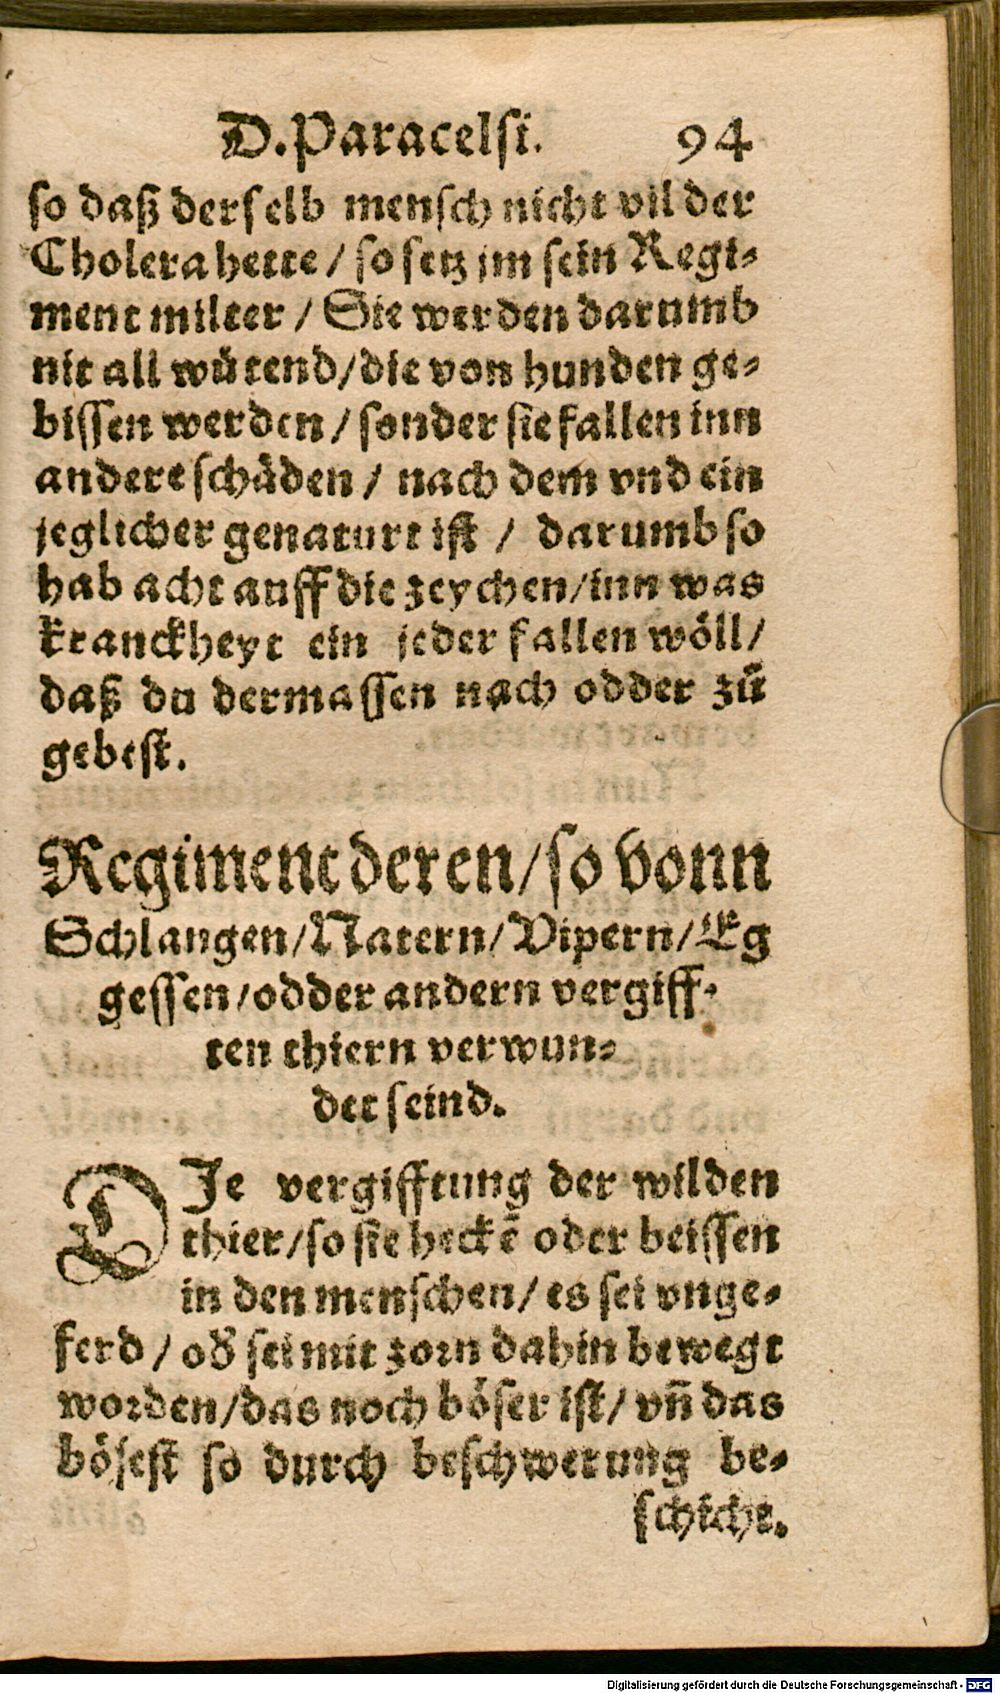 D. Paracelsi. 94
so daß derselb mensch nicht vil der
Cholera hette / so setz jm sein Regi-
ment milter / Sie werden darumb
nit all wütend/die von hunden ge-
bissen werden / sonder sie fallen inn
andere schäden / nach dem vnd ein
jeglicher genaturt ist / darumb so
hab acht auff die zeychen/inn was
kranckheyt ein jeder fallen wöll/
daß du dermassen nach odder zů
gebest.
Regiment deren/so vonn
Schlangen/Natern/Vipern/Eg
gessen/odder andern vergiff-
ten thiern verwun-
det seind.
DIe vergifftung der wilden
thier/so sie heckē oder beissen
in den menschen/ es sei vnge-
ferd / od̕ sei mit zorn dahin bewegt
worden/das noch böser ist/ vn̄ das
bösest so durch beschwerung be-
schicht.
Digitalisierung gefördert durch die Deutsche Forschungsgemeinschaft - DFG